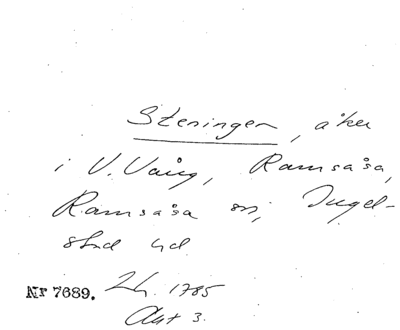 Steningen, åker
i V. Vång, Ramsåsa,
Ramsåsa sn, Ingel-
stad hd.
Nr 7689. Lh. 1785
Akt 3.